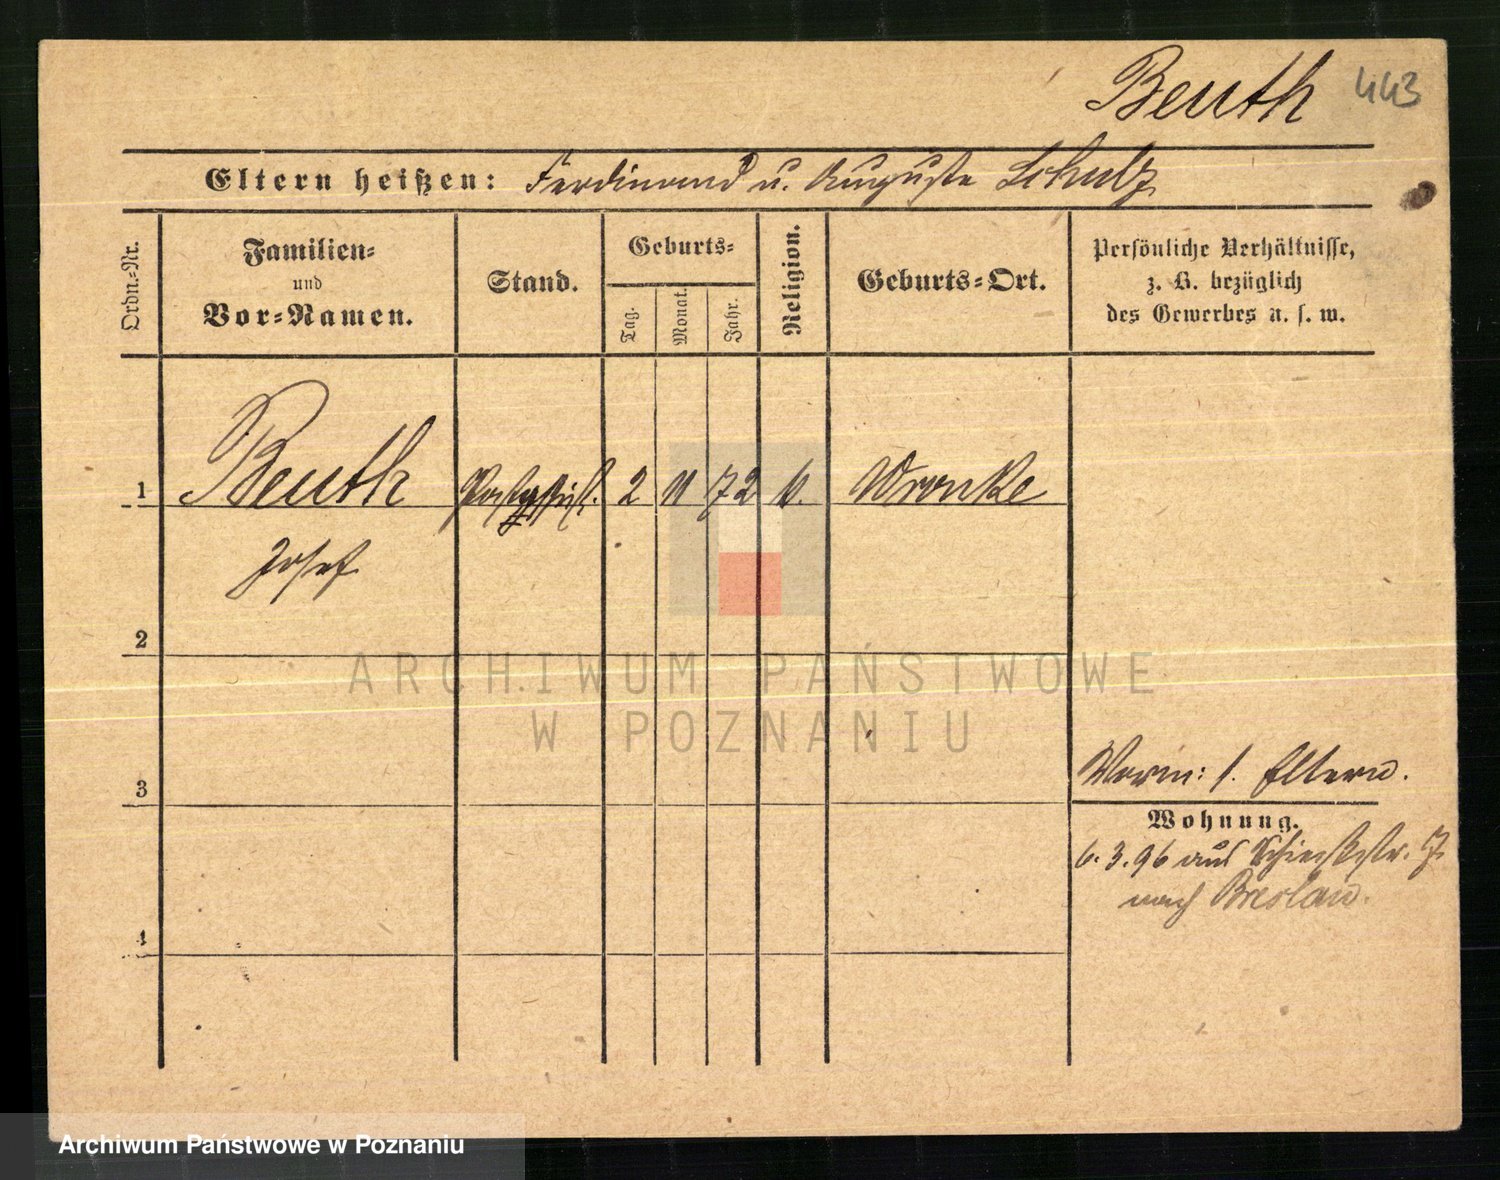 Beuth 443
Eltern heißen: Ferdinand u. Auguste Schulz
Ordn.-Nr.
Familien-
und
Vor-Namen.
Stand.
Geburts-
Tag.
Monat.
Jahr.
Religion.
Geburts-Ort.
Persönliche Verhältnisse,
z. B. bezüglich
des Gewerbes u. s. w.
1 Beuth 2 11 72 k. Wronke
Josef
2
ARCHIWUM PAŃSTWOWE
W POZNANIU
3
Worin: s. Eltern.
Wohnung.
6.3.96 aus 7
nach Breslau.
4
Archiwum Państwowe w Poznaniu